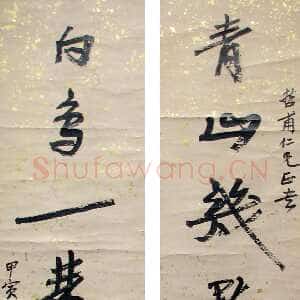 青山幾點
哲甫仁兄正
白鳥一
甲寅
Shufawang.CN